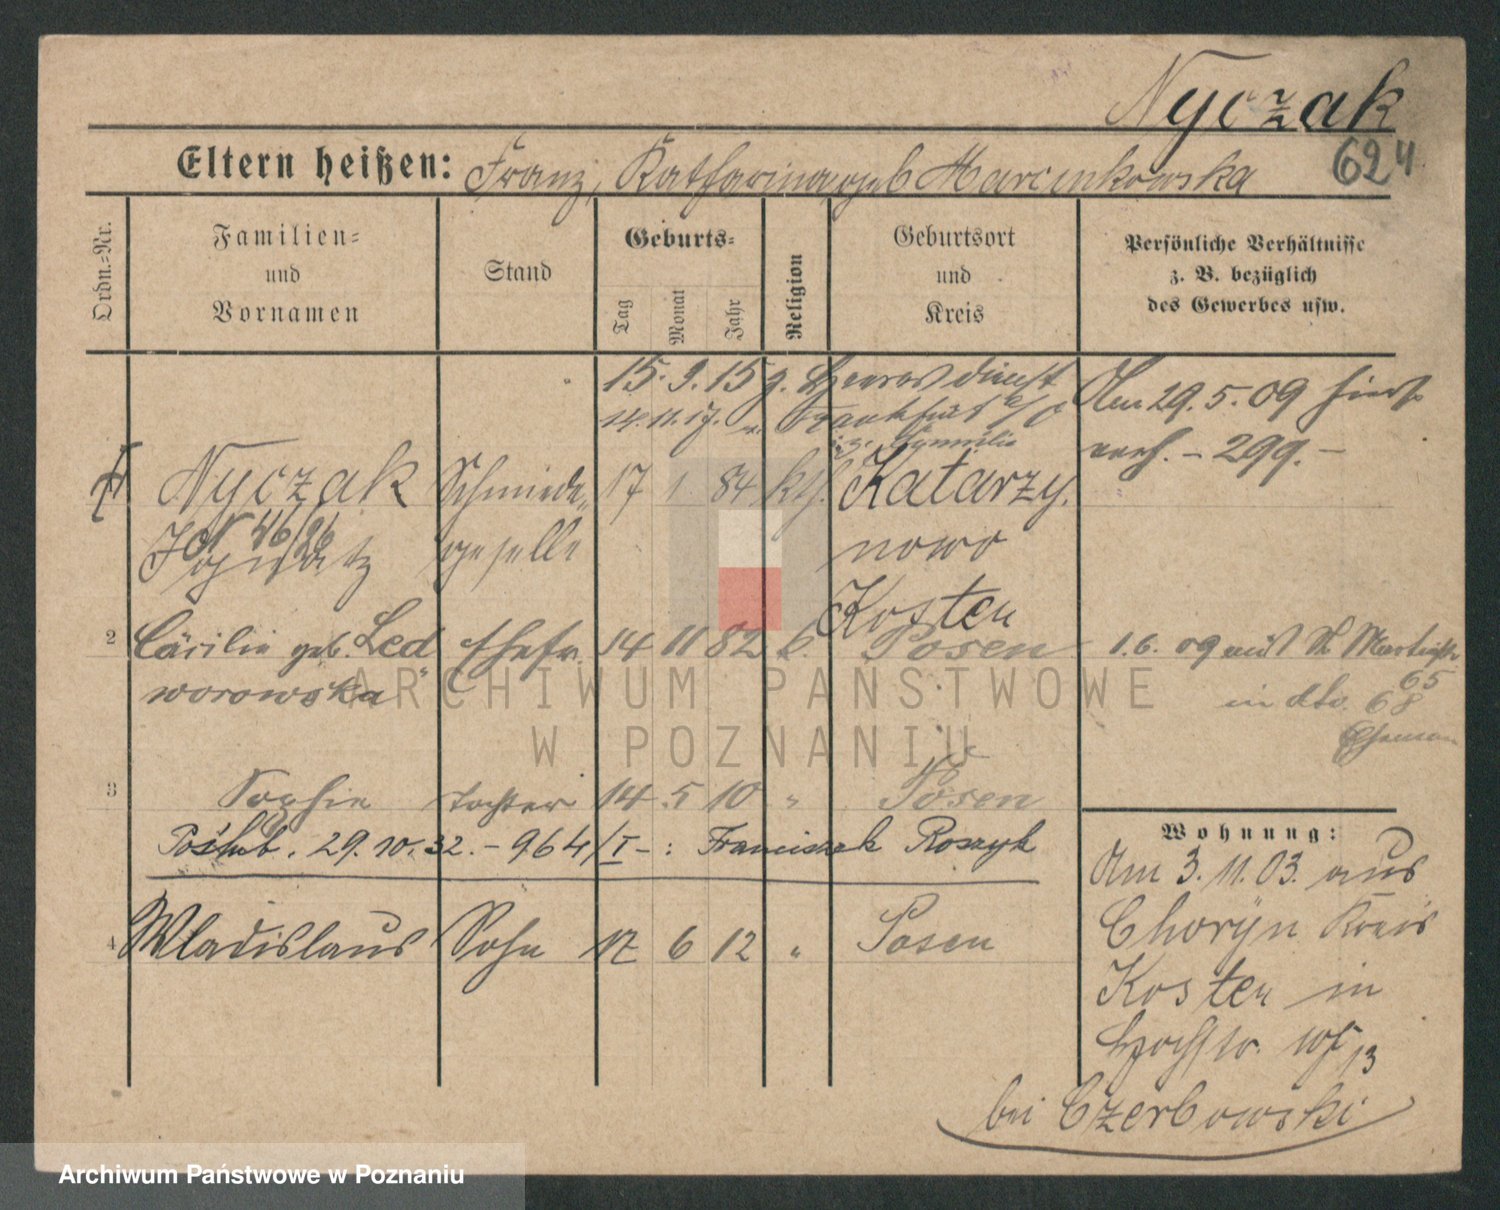 Nyczak
Eltern heißen: Franz, Katharina geb Marcinkowska
624
Ordn.=Nr.
Familien=
und
Vornamen
Stand
Geburts=
Tag
Monat
Jahr
Religion
Geburtsort
und
Kreis
Persönliche Verhältnisse
z. B. bezüglich
des Gewerbes usw.
15. 9. 15 z. Heeresdienst
14. 11. 17. v. Frankfurt a/O
z. Familie
Am 29. 5. 09 hier
verh. - 299. -
Nyczak Schmiede- 17 1 84 kth. Katarzy.
46/26
Ignatz geselle nowo
Kosten
2 Cäcilie geb. Led Ehefr. 14 11 82 k. Posen 1. 6. 09 aus St Martinstr.
worowska 65
in dto. 68
3 Sophie Tochter 14 5 10 " Posen
Poślub. 29. 10. 32. - 964/I - : Franciszek Roszyk
4 Wladislaus Sohn 17 6 12 " Posen
Wohnung:
Am 3. 11. 03. aus
Choryn Kreis
Kosten in
13
bei Czerbowski
ARCHIWUM PAŃSTWOWE
W POZNANIU
Archiwum Państwowe w Poznaniu